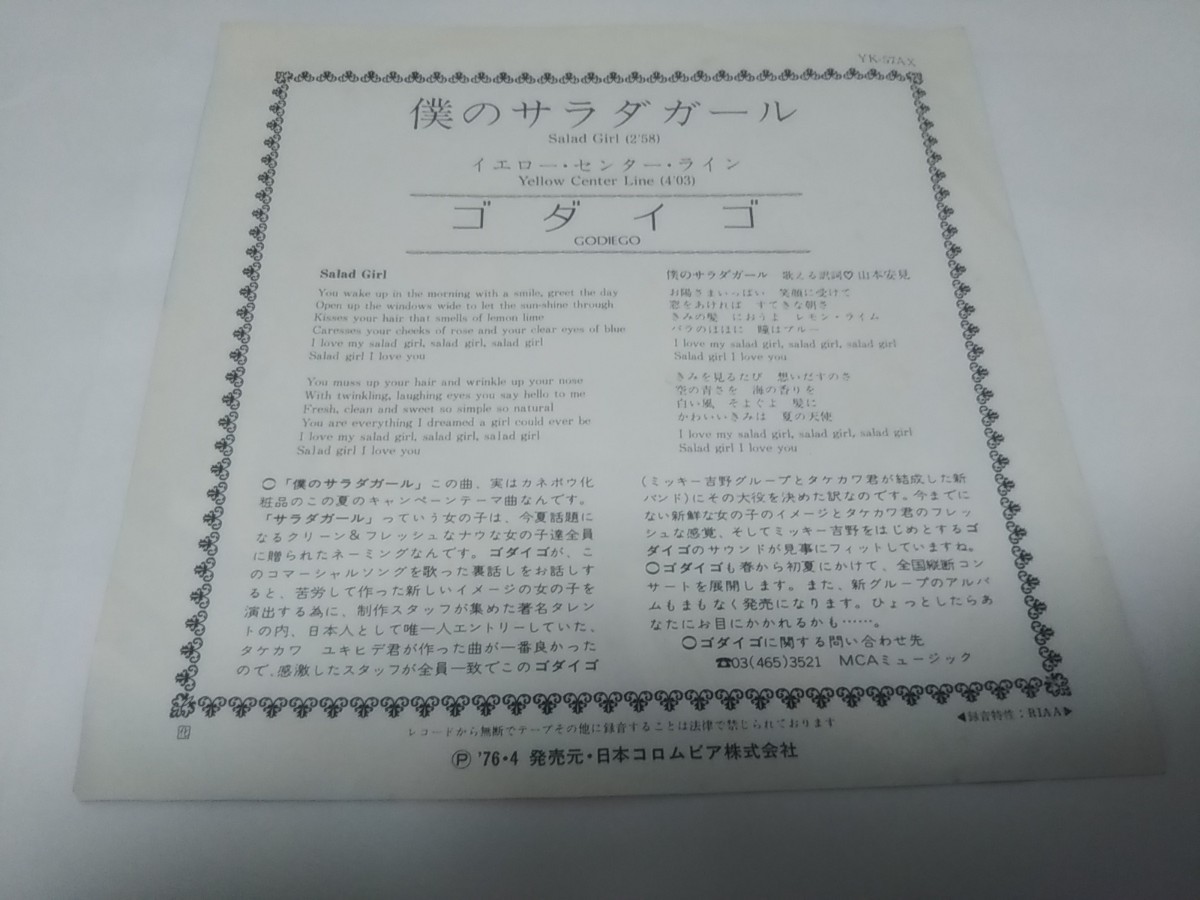 YK-57AX
僕のサラダガール
Salad Girl (2'58)
イエロー・センター・ライン
Yellow Center Line (4'03)
ゴダイゴ
GODIEGO
Salad Girl
You wake up in the morning with a smile, greet the day
Open up the windows wide to let the sun-shine through
Kisses your hair that smells of lemon lime
Caresses your cheeks of rose and your clear eyes of blue
I love my salad girl, salad girl, salad girl
Salad girl I love you
You muss up your hair and wrinkle up your nose
With twinkling, laughing eyes you say hello to me
Fresh, clean and sweet so simple so natural
You are everything I dreamed a girl could ever be
I love my salad girl, salad girl, salad girl
Salad girl I love you
僕のサラダガール 歌える訳詞♡山本安見
お陽さまいっぱい 笑顔に受けて
窓をあければ すてきな朝さ
きみの髪 におうよ レモン・ライム
バラのほほに 瞳はブルー
I love my salad girl, salad girl, salad girl
Salad girl I love you
きみを見るたび 想いだすのさ
空の青さを 海の香りを
白い風 そよぐよ 髪に
かわいいきみは 夏の天使
I love my salad girl, salad girl, salad girl
Salad girl I love you
○「僕のサラダガール」この曲、実はカネボウ化
粧品のこの夏のキャンペーンテーマ曲なんです。
「サラダガール」っていう女の子は、今夏話題に
なるクリーン&フレッシュなナウな女の子達全員
に贈られたネーミングなんです。ゴダイゴが、こ
のコマーシャルソングを歌った裏話しをお話しす
ると、苦労して作った新しいイメージの女の子を
演出する為に、制作スタッフが集めた著名タレン
トの内、日本人として唯一人エントリーしていた、
タケカワ ユキヒデ君が作った曲が一番良かった
ので、感激したスタッフが全員一致でこのゴダイゴ
(ミッキー吉野グループとタケカワ君が結成した新
バンド)にその大役を決めた訳なのです。今までに
ない新鮮な女の子のイメージとタケカワ君のフレッ
シュな感覚、そしてミッキー吉野をはじめとするゴ
ダイゴのサウンドが見事にフィットしていますね。
○ゴダイゴも春から初夏にかけて、全国縦断コン
サートを展開します。また、新グループのアルバ
ムもまもなく発売になります。ひょっとしたらあ
なたにお目にかかれるかも……。
○ゴダイゴに関する問い合わせ先
☎03(465)3521 MCAミュージック
◀録音特性：RIAA▶
レコードから無断でテープその他に録音することは法律で禁じられております
Ⓟ '76・4 発売元・日本コロムビア株式会社